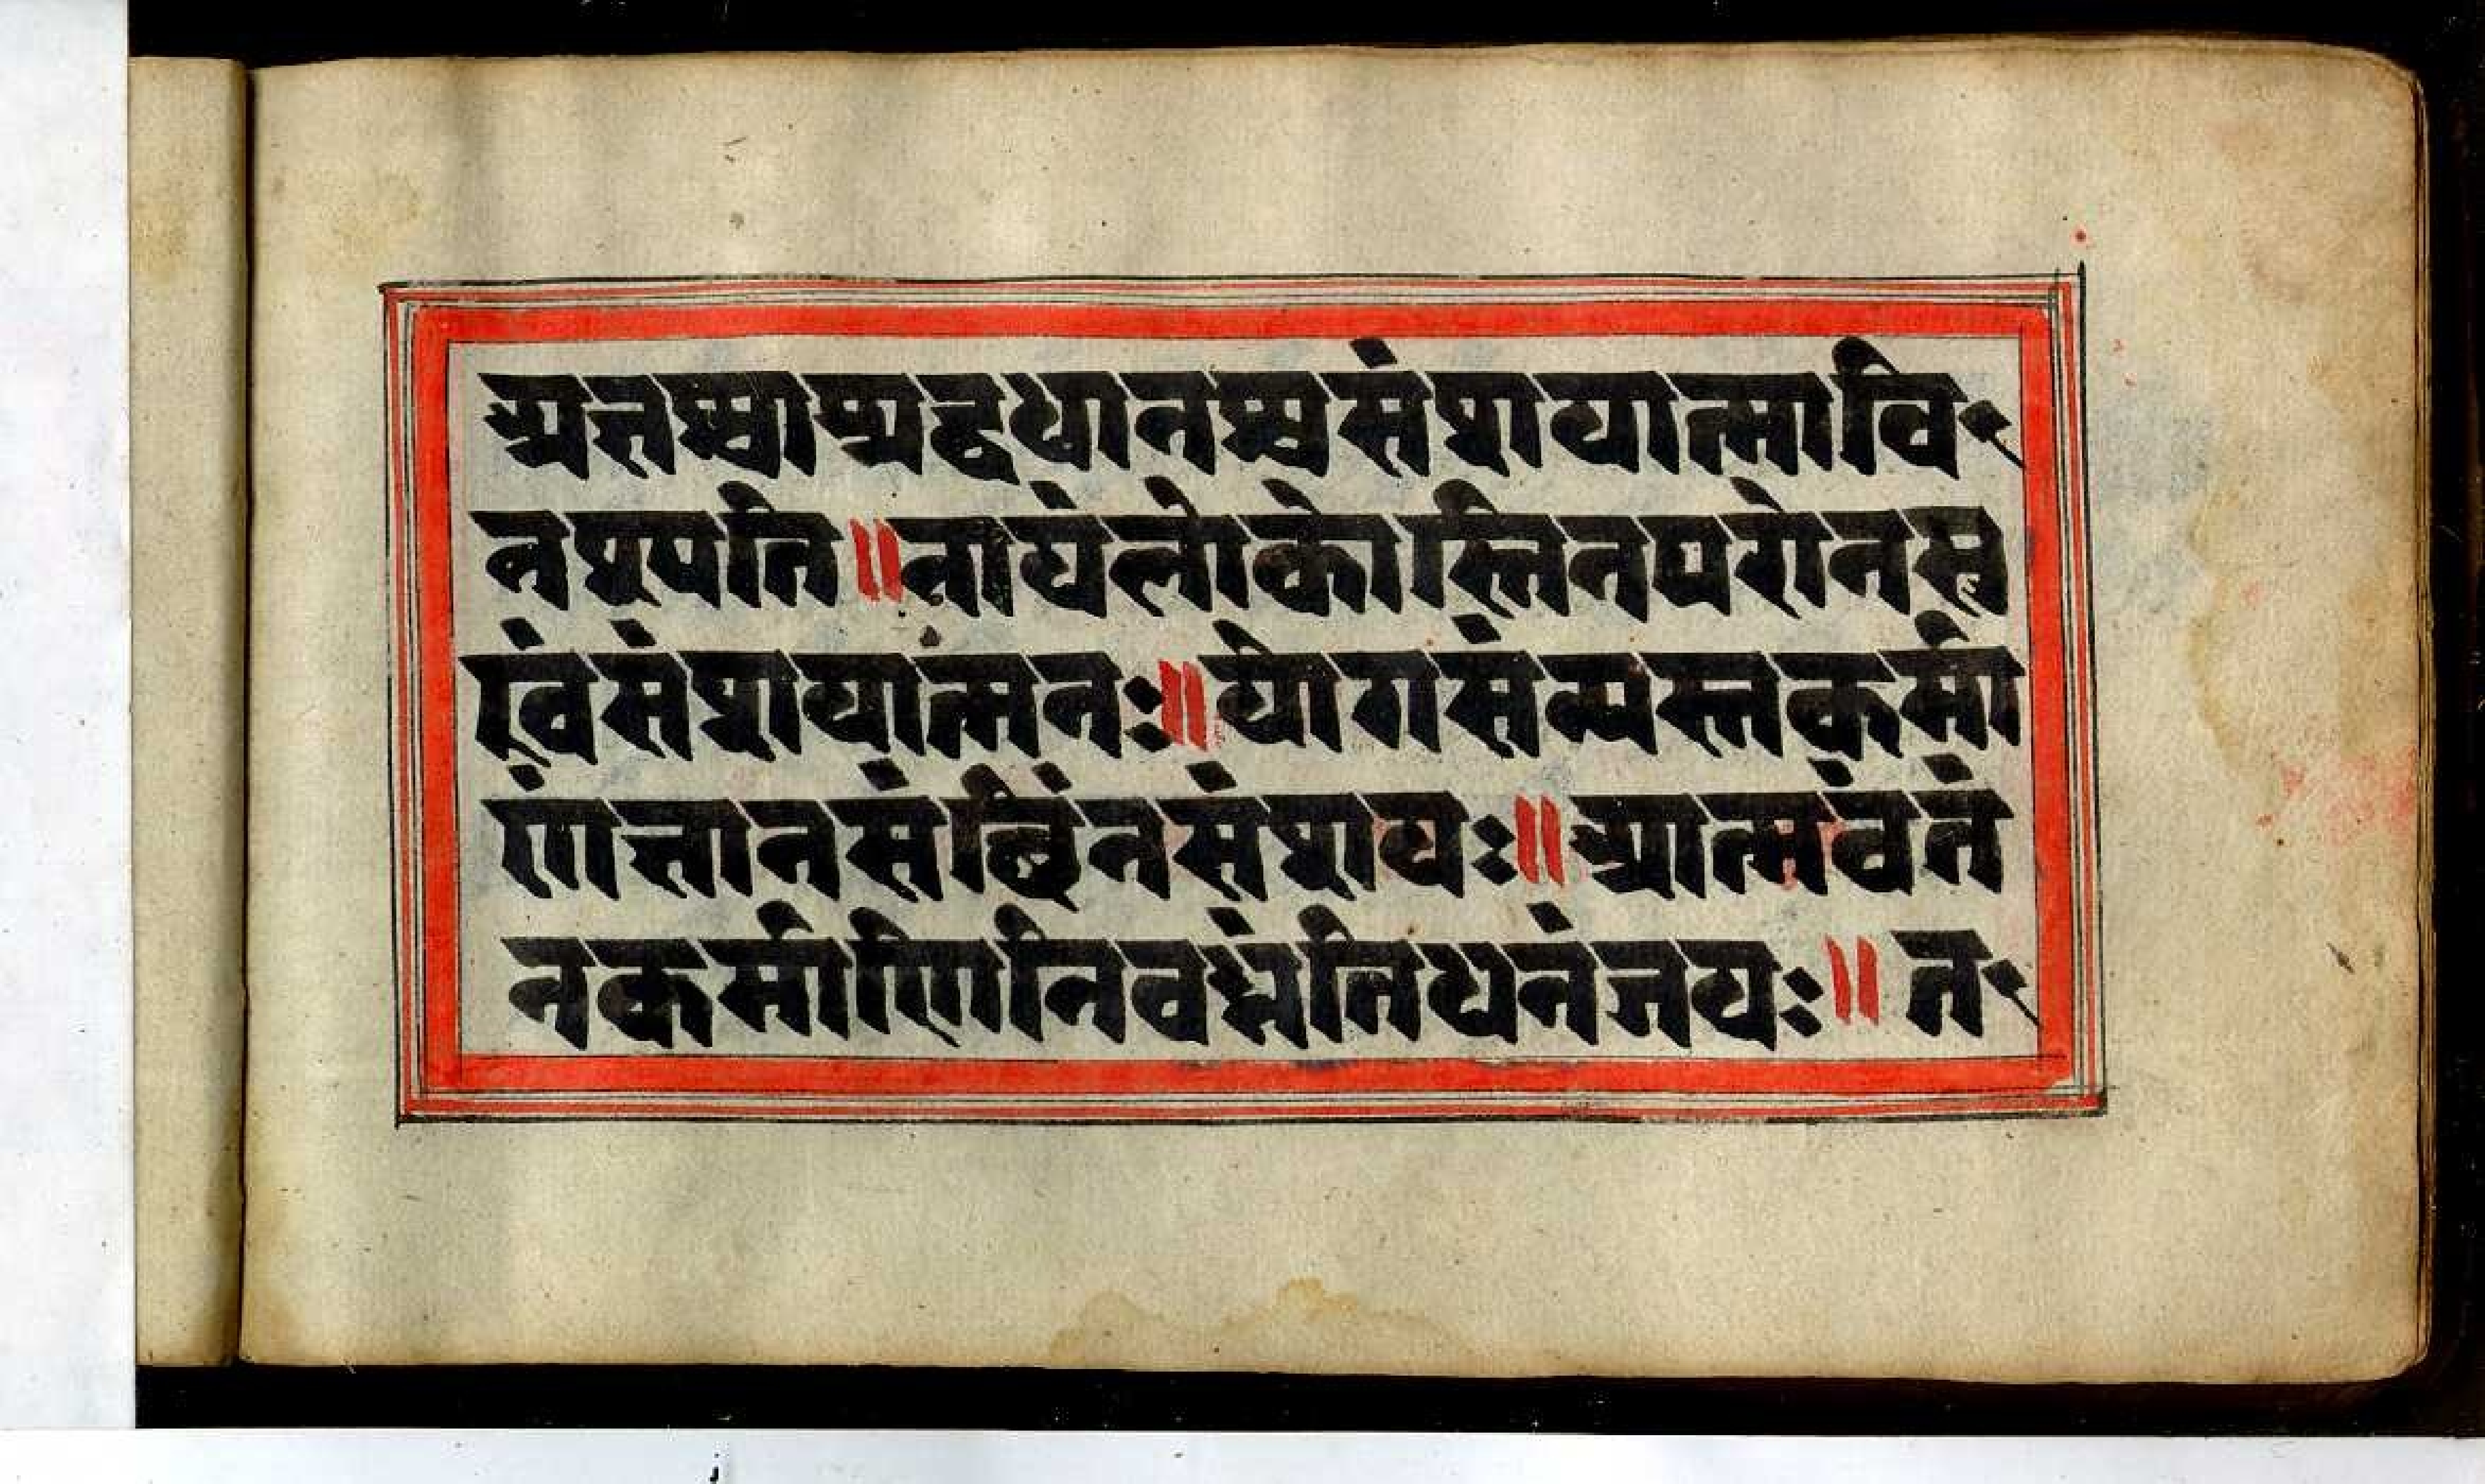 अज्ञश्चाश्रद्दधानश्चसंशयात्मावि-
नश्यति॥नायंलोकोस्तिनपरोनसु
खंसंशयात्मनः॥योगसंन्यस्तकर्मा
णंज्ञानसंछिंनसंशयः॥आत्मवंतं
नकर्माणिनिबध्नंतिधनंजयः॥त-